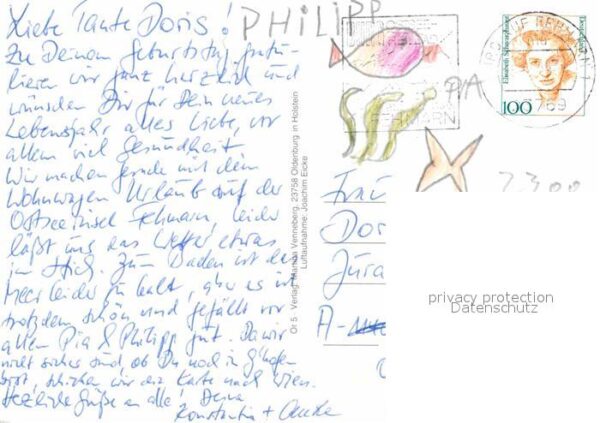 Liebe Tante Doris!
Zu Deinem Geburtstag gratu-
lieren wir ganz herzlich und
wünschen Dir für Dein neues
Lebensjahr alles Liebe, vor
allem viel Gesundheit
Wir machen gerade mit dem
Wohnwagen Urlaub auf der
Ostseeinsel Fehmarn, leider
läßt uns das Wetter etwas
im Stich. Zum Baden ist das
Meer leider zu kalt, aber es ist
trotzdem schön und gefällt vor
allem Pia & Philipp gut. Da wir
nicht sicher sind, ob Du noch in
bist, schicken wir die Karte nach Wien.
Herzliche Grüße an alle! Deine
Konstantin +
PHILIPP
PIA
FEHMARN
Elisabeth Schwarzhaupt
Deutschland
100
Or 5 Verlag: Venneberg, 23758 Oldenburg in Holstein
Luftaufnahme: Joachim Eicke
Frau
Dor
Jura
A-
2300
privacy protection
Datenschutz